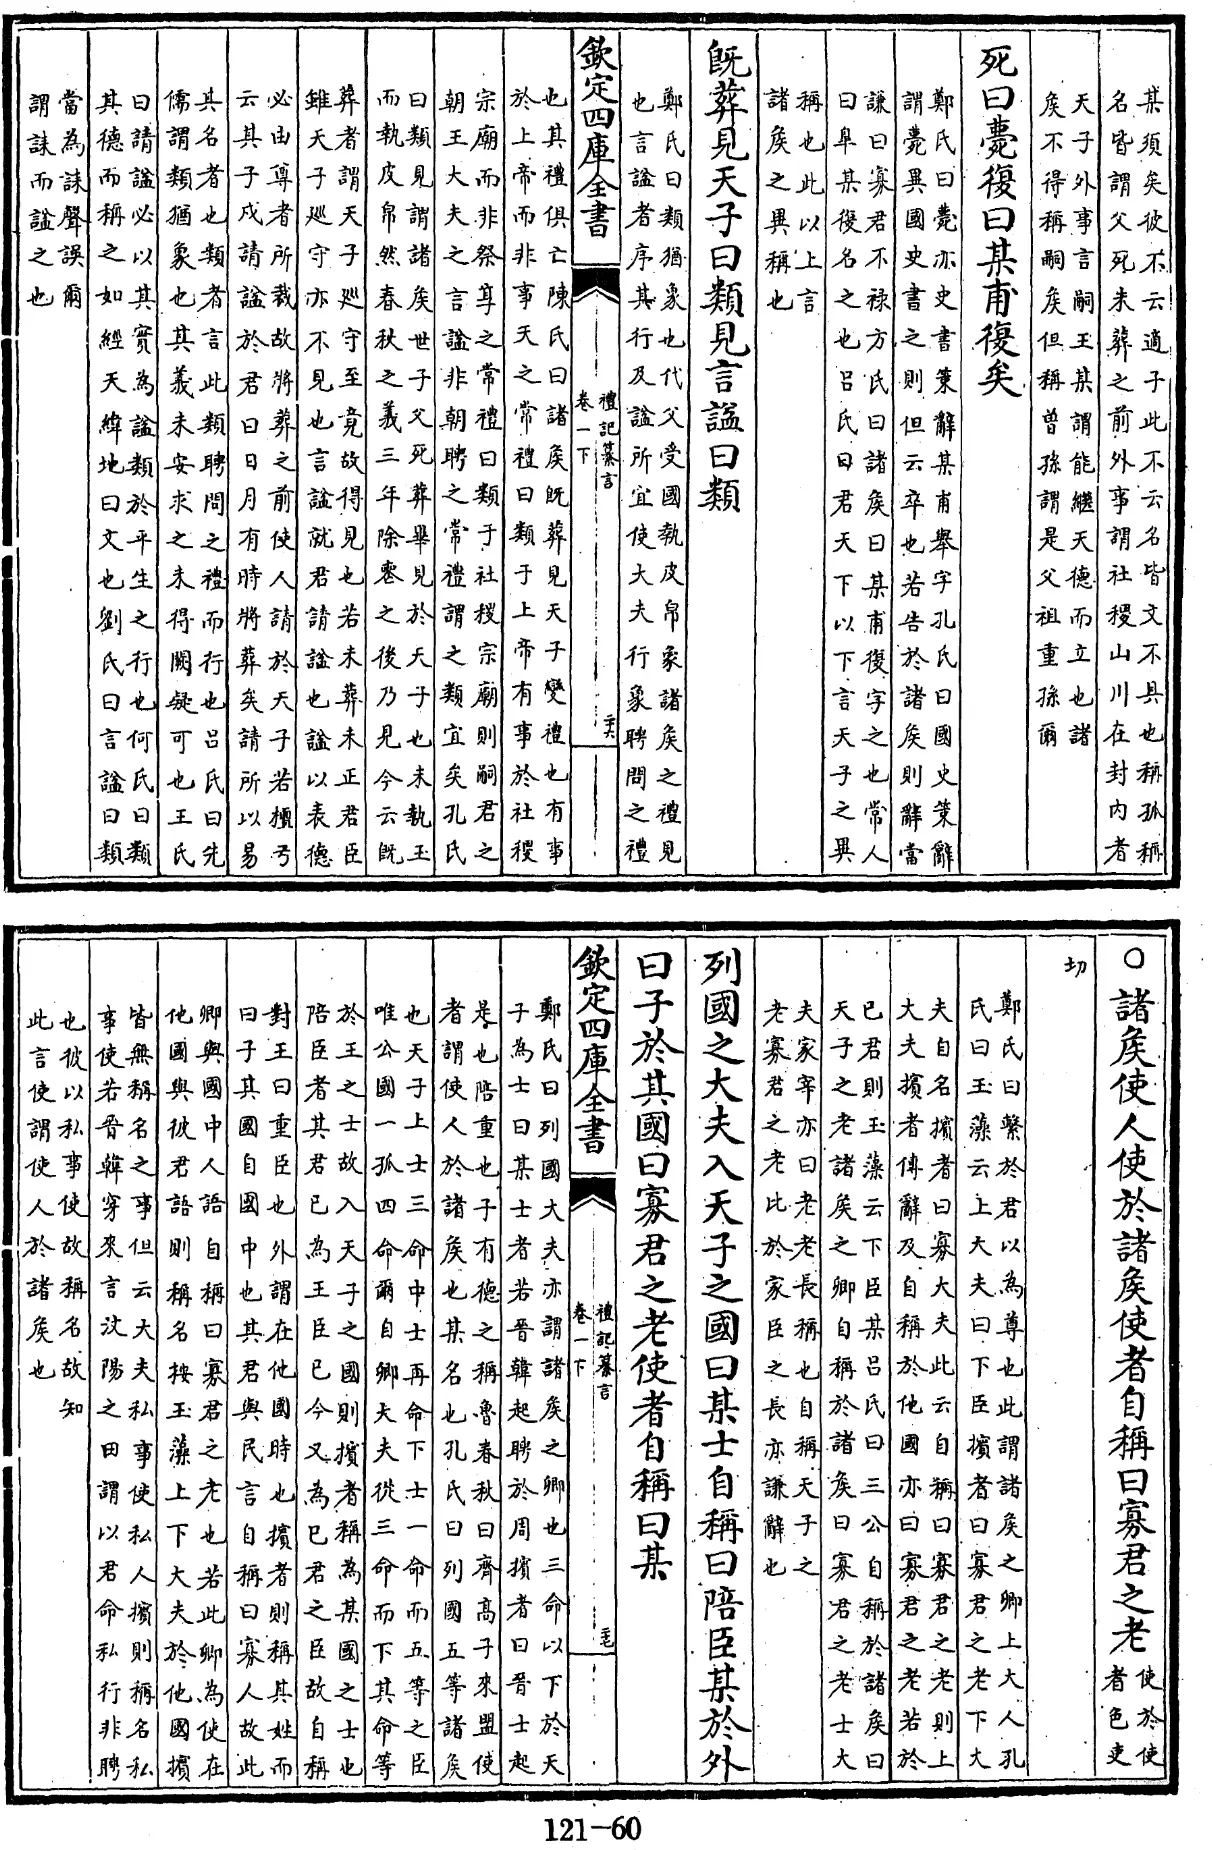 某須矣彼不云適子此不云名皆文不具也稱孤稱
名皆謂父死未葬之前外事謂社稷山川在封内者
天子外事言嗣王某謂能繼天德而立也諸
侯不得稱嗣侯但稱曾孫謂是父祖重孫爾
死曰薨復曰某甫復矣
鄭氏曰薨亦史書策辭某甫舉字孔氏曰國史策辭
謂薨異國史書之則但云卒也若告於諸侯則辭當
謙曰寡君不禄方氏曰諸侯曰某甫復字之也常人
曰臯某復名之也吕氏曰君天下以下言天子之異
稱也此以上言
諸侯之異稱也
既葬見天子曰類見言諡曰類
鄭氏曰類猶象也代父受國執皮帛象諸侯之禮見
也言諡者序其行及諡所宜使大夫行象聘問之禮
欽定四庫全書
禮記纂言
卷一下
三六
也其禮俱亡陳氏曰諸侯既葬見天子變禮也有事
於上帝而非事天之常禮曰類于上帝有事於社稷
宗廟而非祭享之常禮曰類于社稷宗廟則嗣君之
朝王大夫之言諡非朝聘之常禮謂之類宜矣孔氏
曰類見謂諸侯世子父死葬畢見於天子也未執玉
而執皮帛然春秋之義三年除喪之後乃見今云既
葬者謂天子廵守至竟故得見也若未葬未正君臣
雖天子廵守亦不見也言諡就君請諡也諡以表德
必由尊者所裁故將葬之前使人請於天子若檀弓
云其子戍請諡於君曰日月有時將葬矣請所以易
其名者也類者言此類聘問之禮而行也吕氏曰先
儒謂類猶象也其義未安求之未得闕疑可也王氏
曰請諡必以其實為諡類於平生之行也何氏曰類
其德而稱之如經天緯地曰文也劉氏曰言諡曰類
當為誄聲誤爾
謂誄而諡之也
○諸侯使人使於諸侯使者自稱曰寡君之老
使於使
者色吏
切
鄭氏曰繫於君以為尊也此謂諸侯之卿上大人孔
氏曰玉藻云上大夫曰下臣擯者曰寡君之老下大
夫自名擯者曰寡大夫此云自稱曰寡君之老則上
大夫擯者傳辭及自稱於他國亦曰寡君之老若於
已君則玉藻云下臣某吕氏曰三公自稱於諸侯曰
天子之老諸侯之卿自稱於諸侯曰寡君之老士大
夫家宰亦曰老老長稱也自稱天子之
老寡君之老比於家臣之長亦謙辭也
列國之大夫入天子之國曰某士自稱曰陪臣某於外
曰子於其國曰寡君之老使者自稱曰某
欽定四庫全書
禮記纂言
卷一下
三七
鄭氏曰列國大夫亦謂諸侯之卿也三命以下於天
子為士曰某士者若晉韓起聘於周擯者曰晉士起
是也陪重也子有德之稱魯春秋曰齊髙子來盟使
者謂使人於諸侯也某名也孔氏曰列國五等諸侯
也天子上士三命中士再命下士一命而五等之臣
唯公國一孤四命爾自卿大夫從三命而下其命等
於王之士故入天子之國則擯者稱為某國之士也
陪臣者其君已為王臣已今又為已君之臣故自稱
對王曰重臣也外謂在他國時也擯者則稱其姓而
曰子其國自國中也其君與民言自稱曰寡人故此
卿與國中人語自稱曰寡君之老也若此卿為使在
他國與彼君語則稱名按玉藻上下大夫於他國擯
皆無稱名之事但云大夫私事使私人擯則稱名私
事使若晉韓穿來言汶陽之田謂以君命私行非聘
也彼以私事使故稱名故知
此言使謂使人於諸侯也
121-60